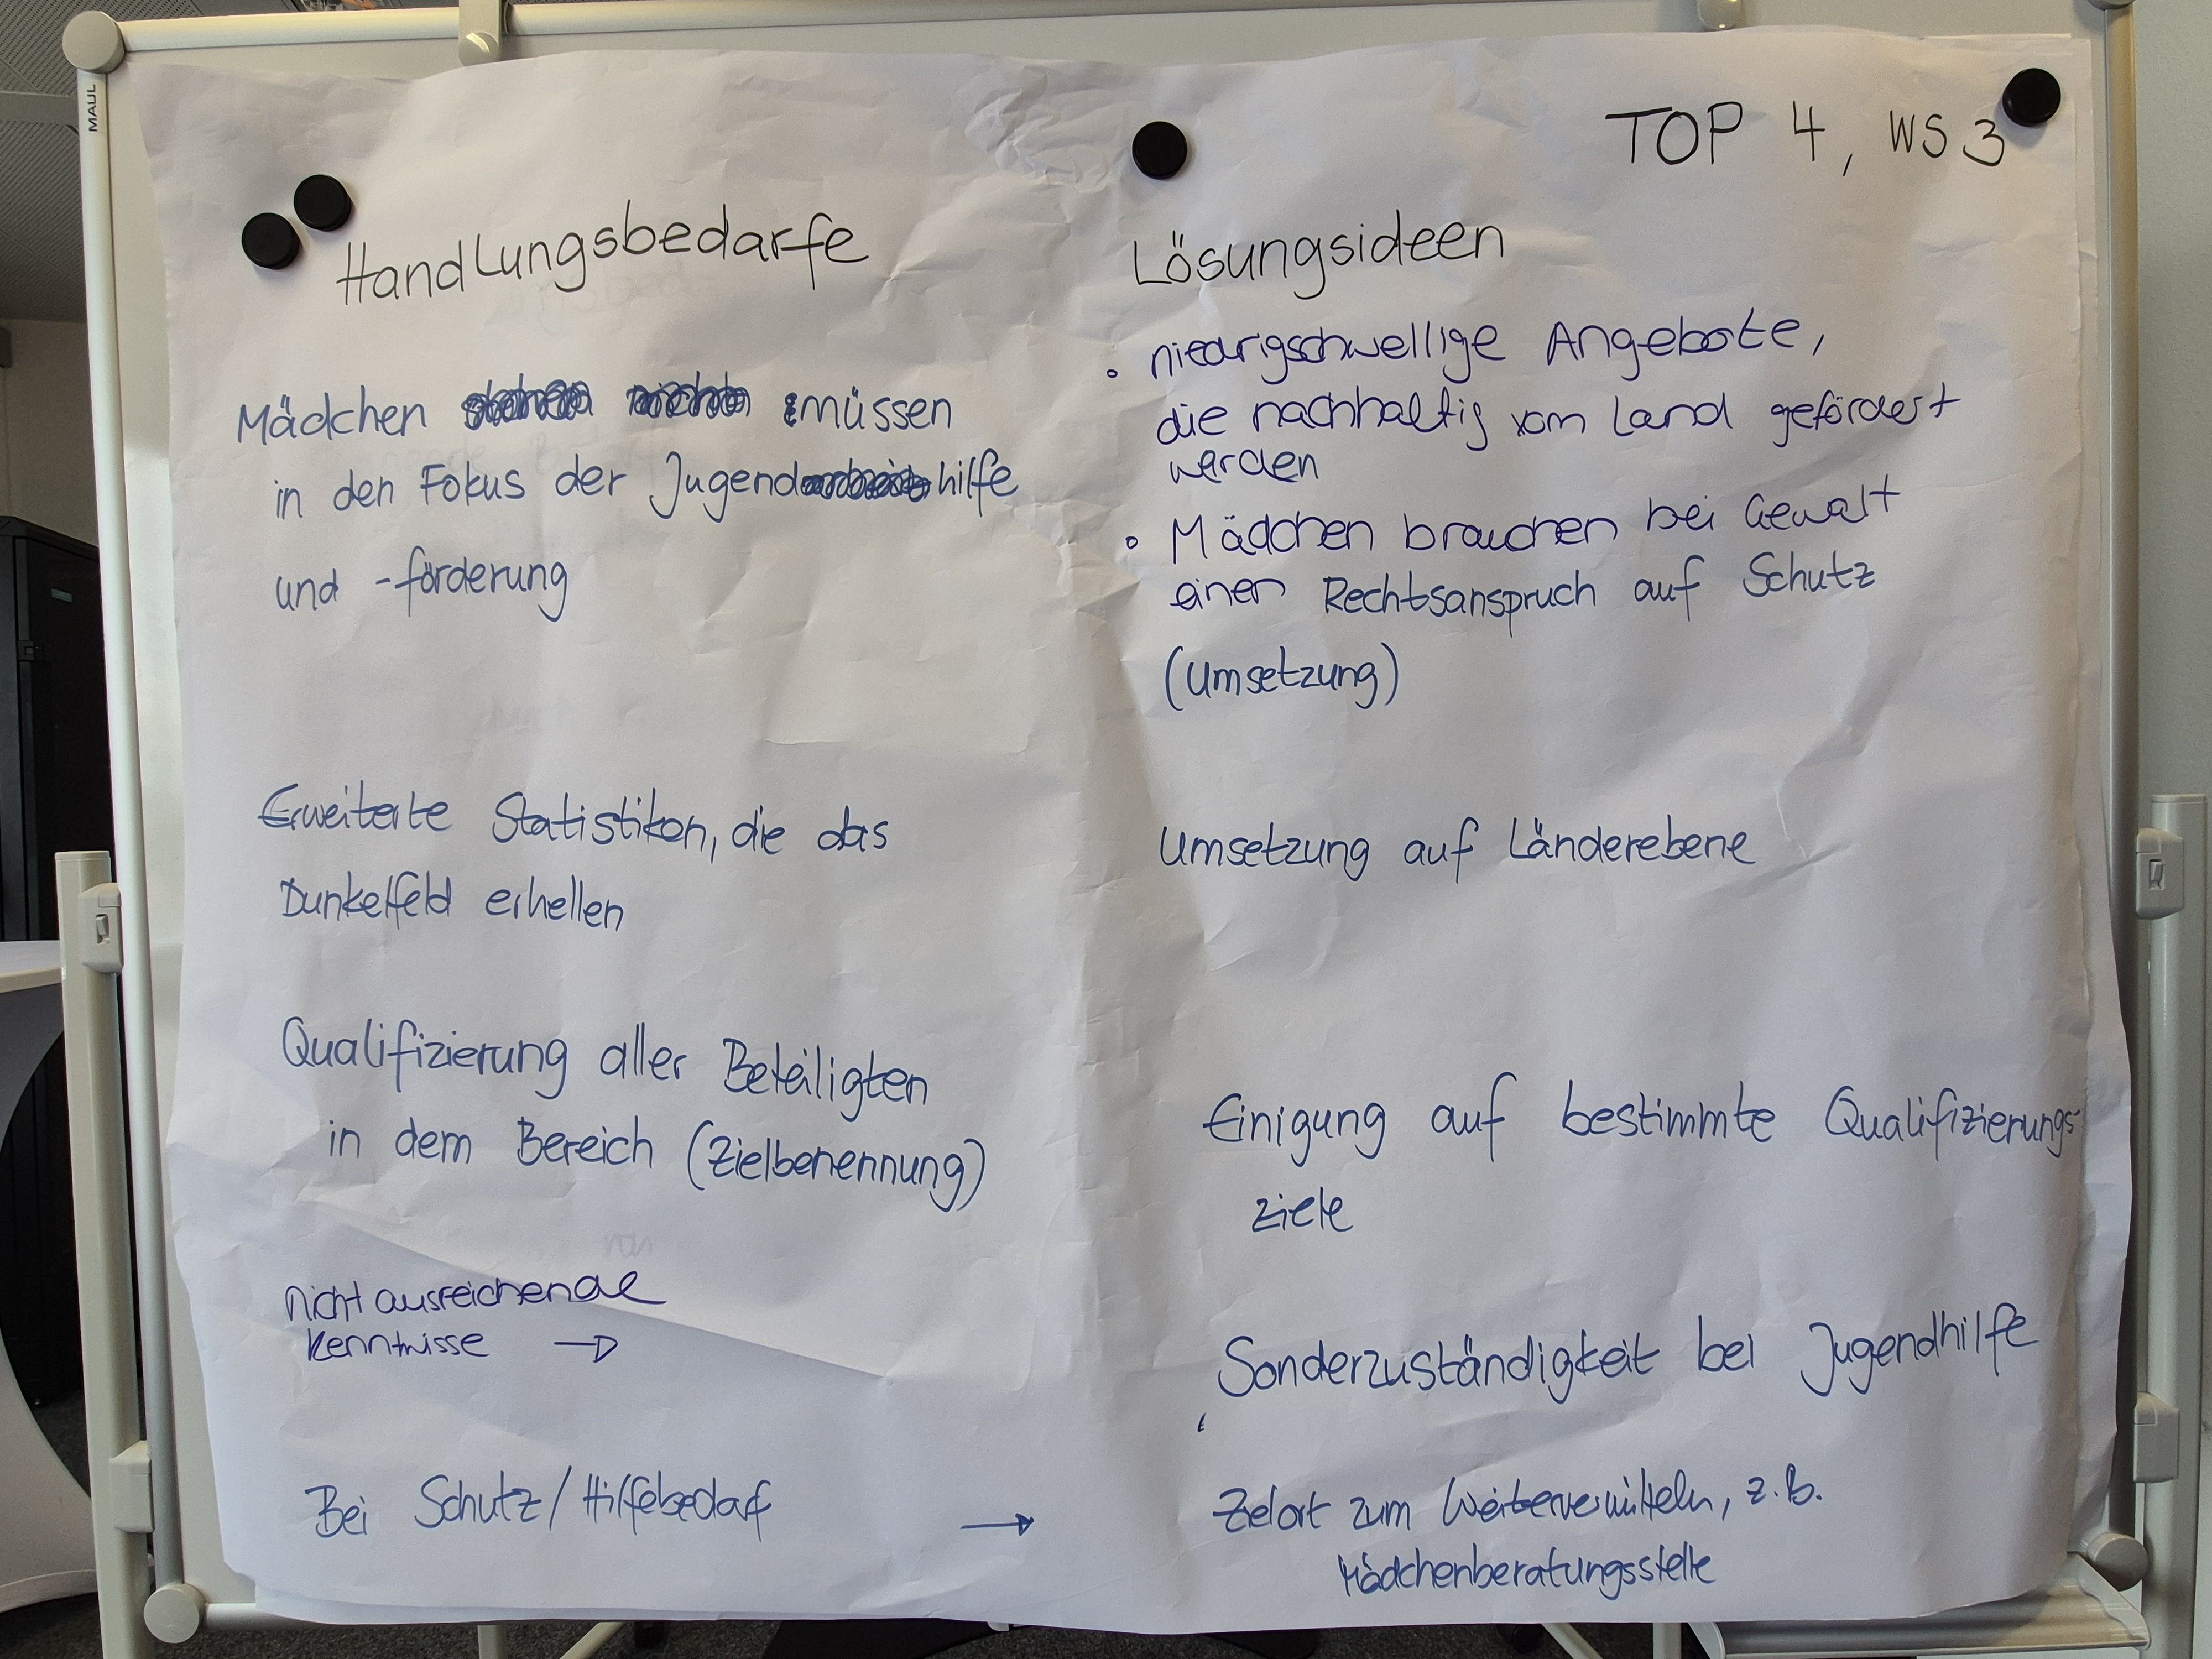 MAUL
TOP 4, WS 3
Handlungsbedarfe
Mädchen müssen
in den Fokus der Jugendhilfe
und -förderung
Erweiterte Statistiken, die das
Dunkelfeld erhellen
Qualifizierung aller Beteiligten
in dem Bereich (Zielbenennung)
nicht ausreichende
Kenntnisse →
Bei Schutz/Hilfebedarf →
Lösungsideen
• niedrigschwellige Angebote,
die nachhaltig vom Land gefördert
werden
• Mädchen brauchen bei Gewalt
einen Rechtsanspruch auf Schutz
(Umsetzung)
Umsetzung auf Länderebene
Einigung auf bestimmte Qualifizierungs-
ziele
Sonderzuständigkeit bei Jugendhilfe
Zielort zum Weitervermitteln, z.B.
Mädchenberatungsstelle